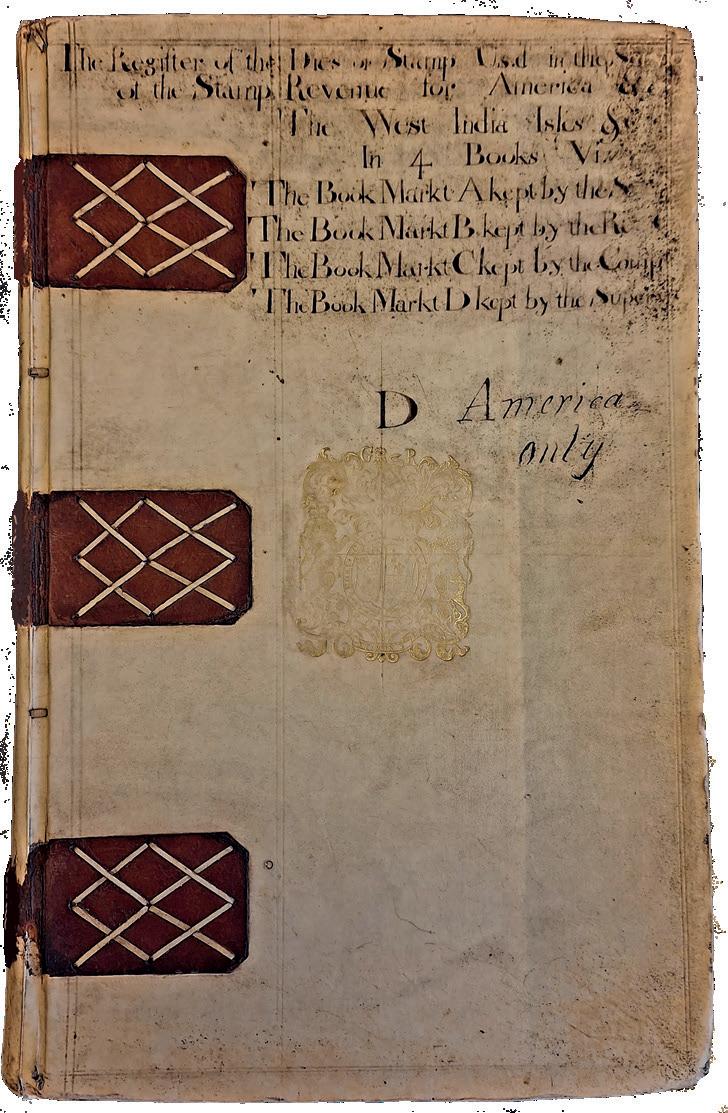 The Register of the Dies or Stamp Us.d in the
of the Stamp Revenue for America &
The West India Isles &
In 4 Books Viz
The Book Markt A kept by the
The Book Markt B. kept by the
The Book Markt C kept by the
The Book Markt D kept by the
D America
only
G R